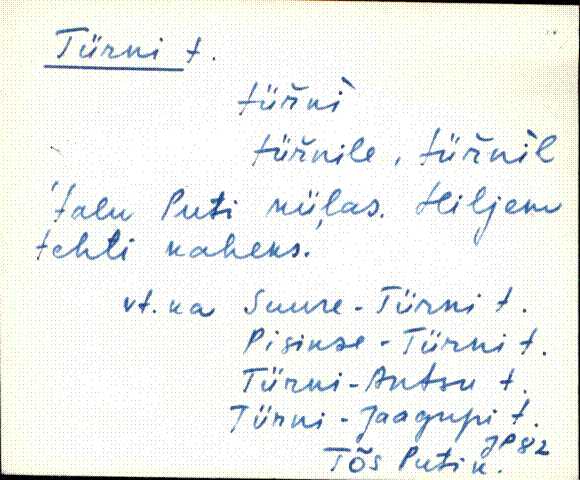 Türni t.
tür̆ni`
tür̆nile, tür̆ni`l
Talu Puti külas. Hiljem
tehti kaheks.
vt. ka Suure-Türni t.
Pisikse-Türni t.
Türni-Antsu t.
Türni-Jaagupi t.
JP82
Tõs Puti k.